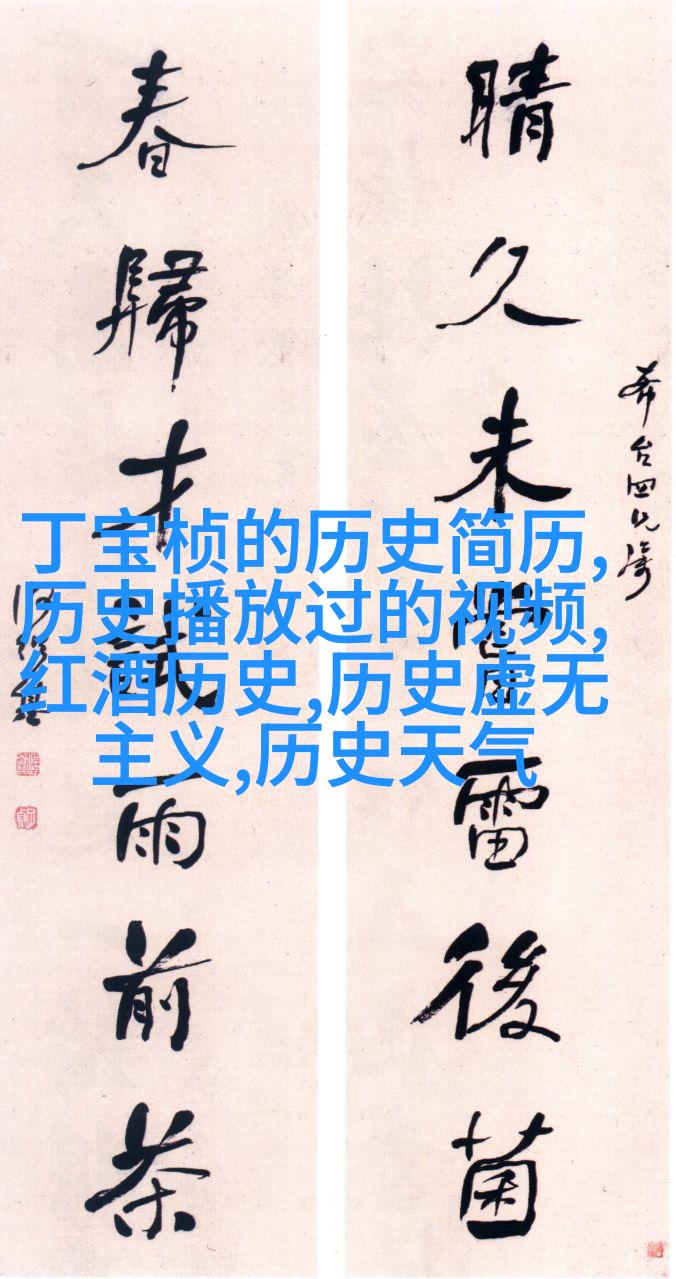 晴久未
雷後菌
春歸才試雨前茶
丁宝桢的历史简历,
历史播放过的视频,
红酒历史,历史虚无
主义,历史天气